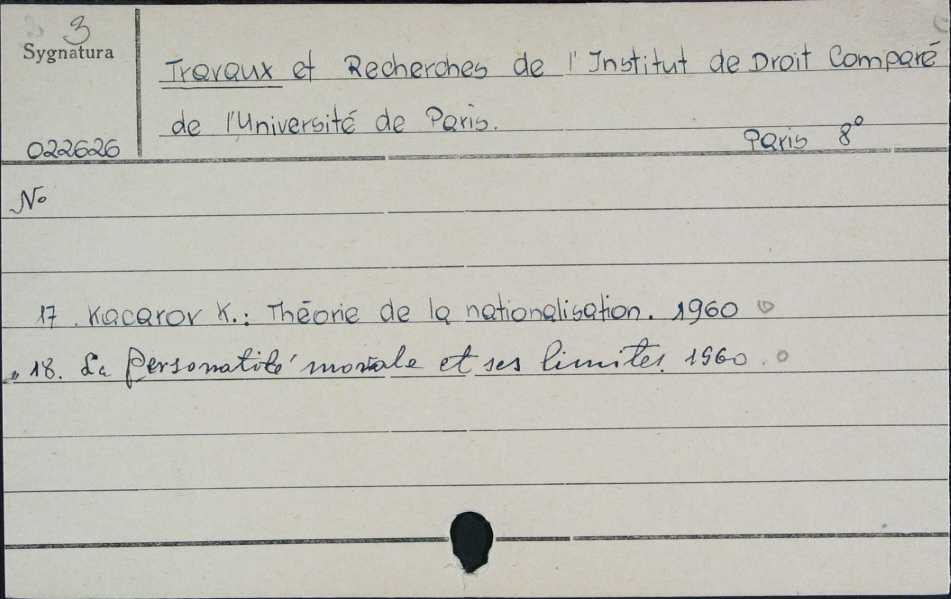 3
Sygnatura
022626
Travaux et Recherches de l'Institut de Droit Comparé
de l'Université de Paris.
Paris 8°
No
17. Kacarov K.: Théorie de la nationalisation. 1960
18. La Personatité morale et ses limites. 1960.